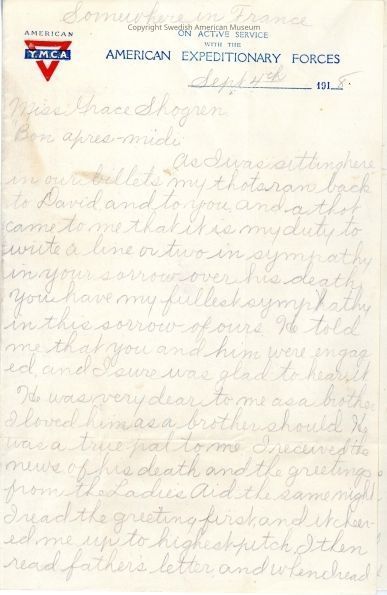 Somewhere in France
Copyright Swedish American Museum
AMERICAN
Y.M.C.A.
ON ACTIVE SERVICE
WITH THE
AMERICAN EXPEDITIONARY FORCES
Sept 4th 1918
Miss Grace Skogren
Bon apres-midi
As I was sitting here
in our billets my thots ran back
to David, and to you, and a thot
came to me that it is my duty to
write a line or two in sympathy
in your sorrow over his death,
You have my fullest symphathy
in this sorrow of ours. He told
me that you and him were engag
ed, and I sure was glad to hear it
He was very dear to me as a brother
I loved him as a brother should. He
was a true pal to me. I received the
news of his death and the greetings
from the Ladies Aid the same night
I read the greeting first, and it cheer-
ed me up to highest pitch, I then
read fathers letter, and when I read